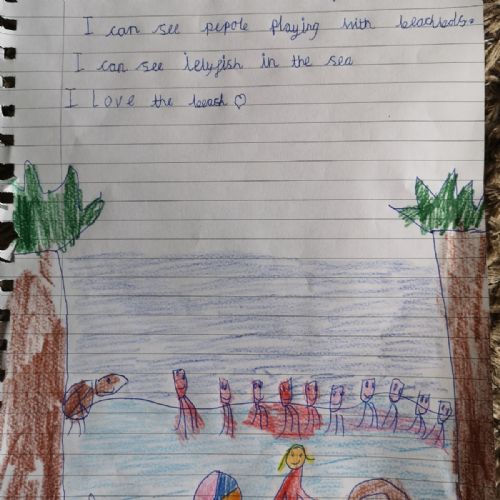 I can see pepole playing with beachbds.
I can see jelyfish in the sea
I Love the beach ♡